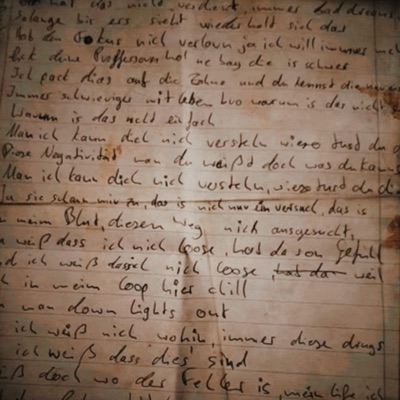 hat das nicht verdient, immer bad dreams
Solange bis ers sieht wiederholt sich das
Hab ein Fokus nich verlorn ja ich will immer
fick deine Proffessors hol ne bag die is schwer
Ich pack dies auf die Zähne und du kennst die
Immer schwieriger mit leben bro warum is das nicht
Warum is das nicht einfach
Man ich kann dich nich verstehn wieso tust du
Diese Negativität man du weißt doch was du kannst
Man ich kann dich nich verstehn, wieso tust du
Ja sie schaun mir zu, das is nich nur ein versuch, das is
in meim Blut, diesen Weg nich ausgesucht,
weiß dass ich nich loose, hab da son Gefühl
ich weiß dass ich nich loose, weil
ich in meim loop hier chill
man down lights out
ich weiß nich wohin, immer diese drugs
ich weiß dass dies sind
weiß doch wo der Fehler is, mein life ich